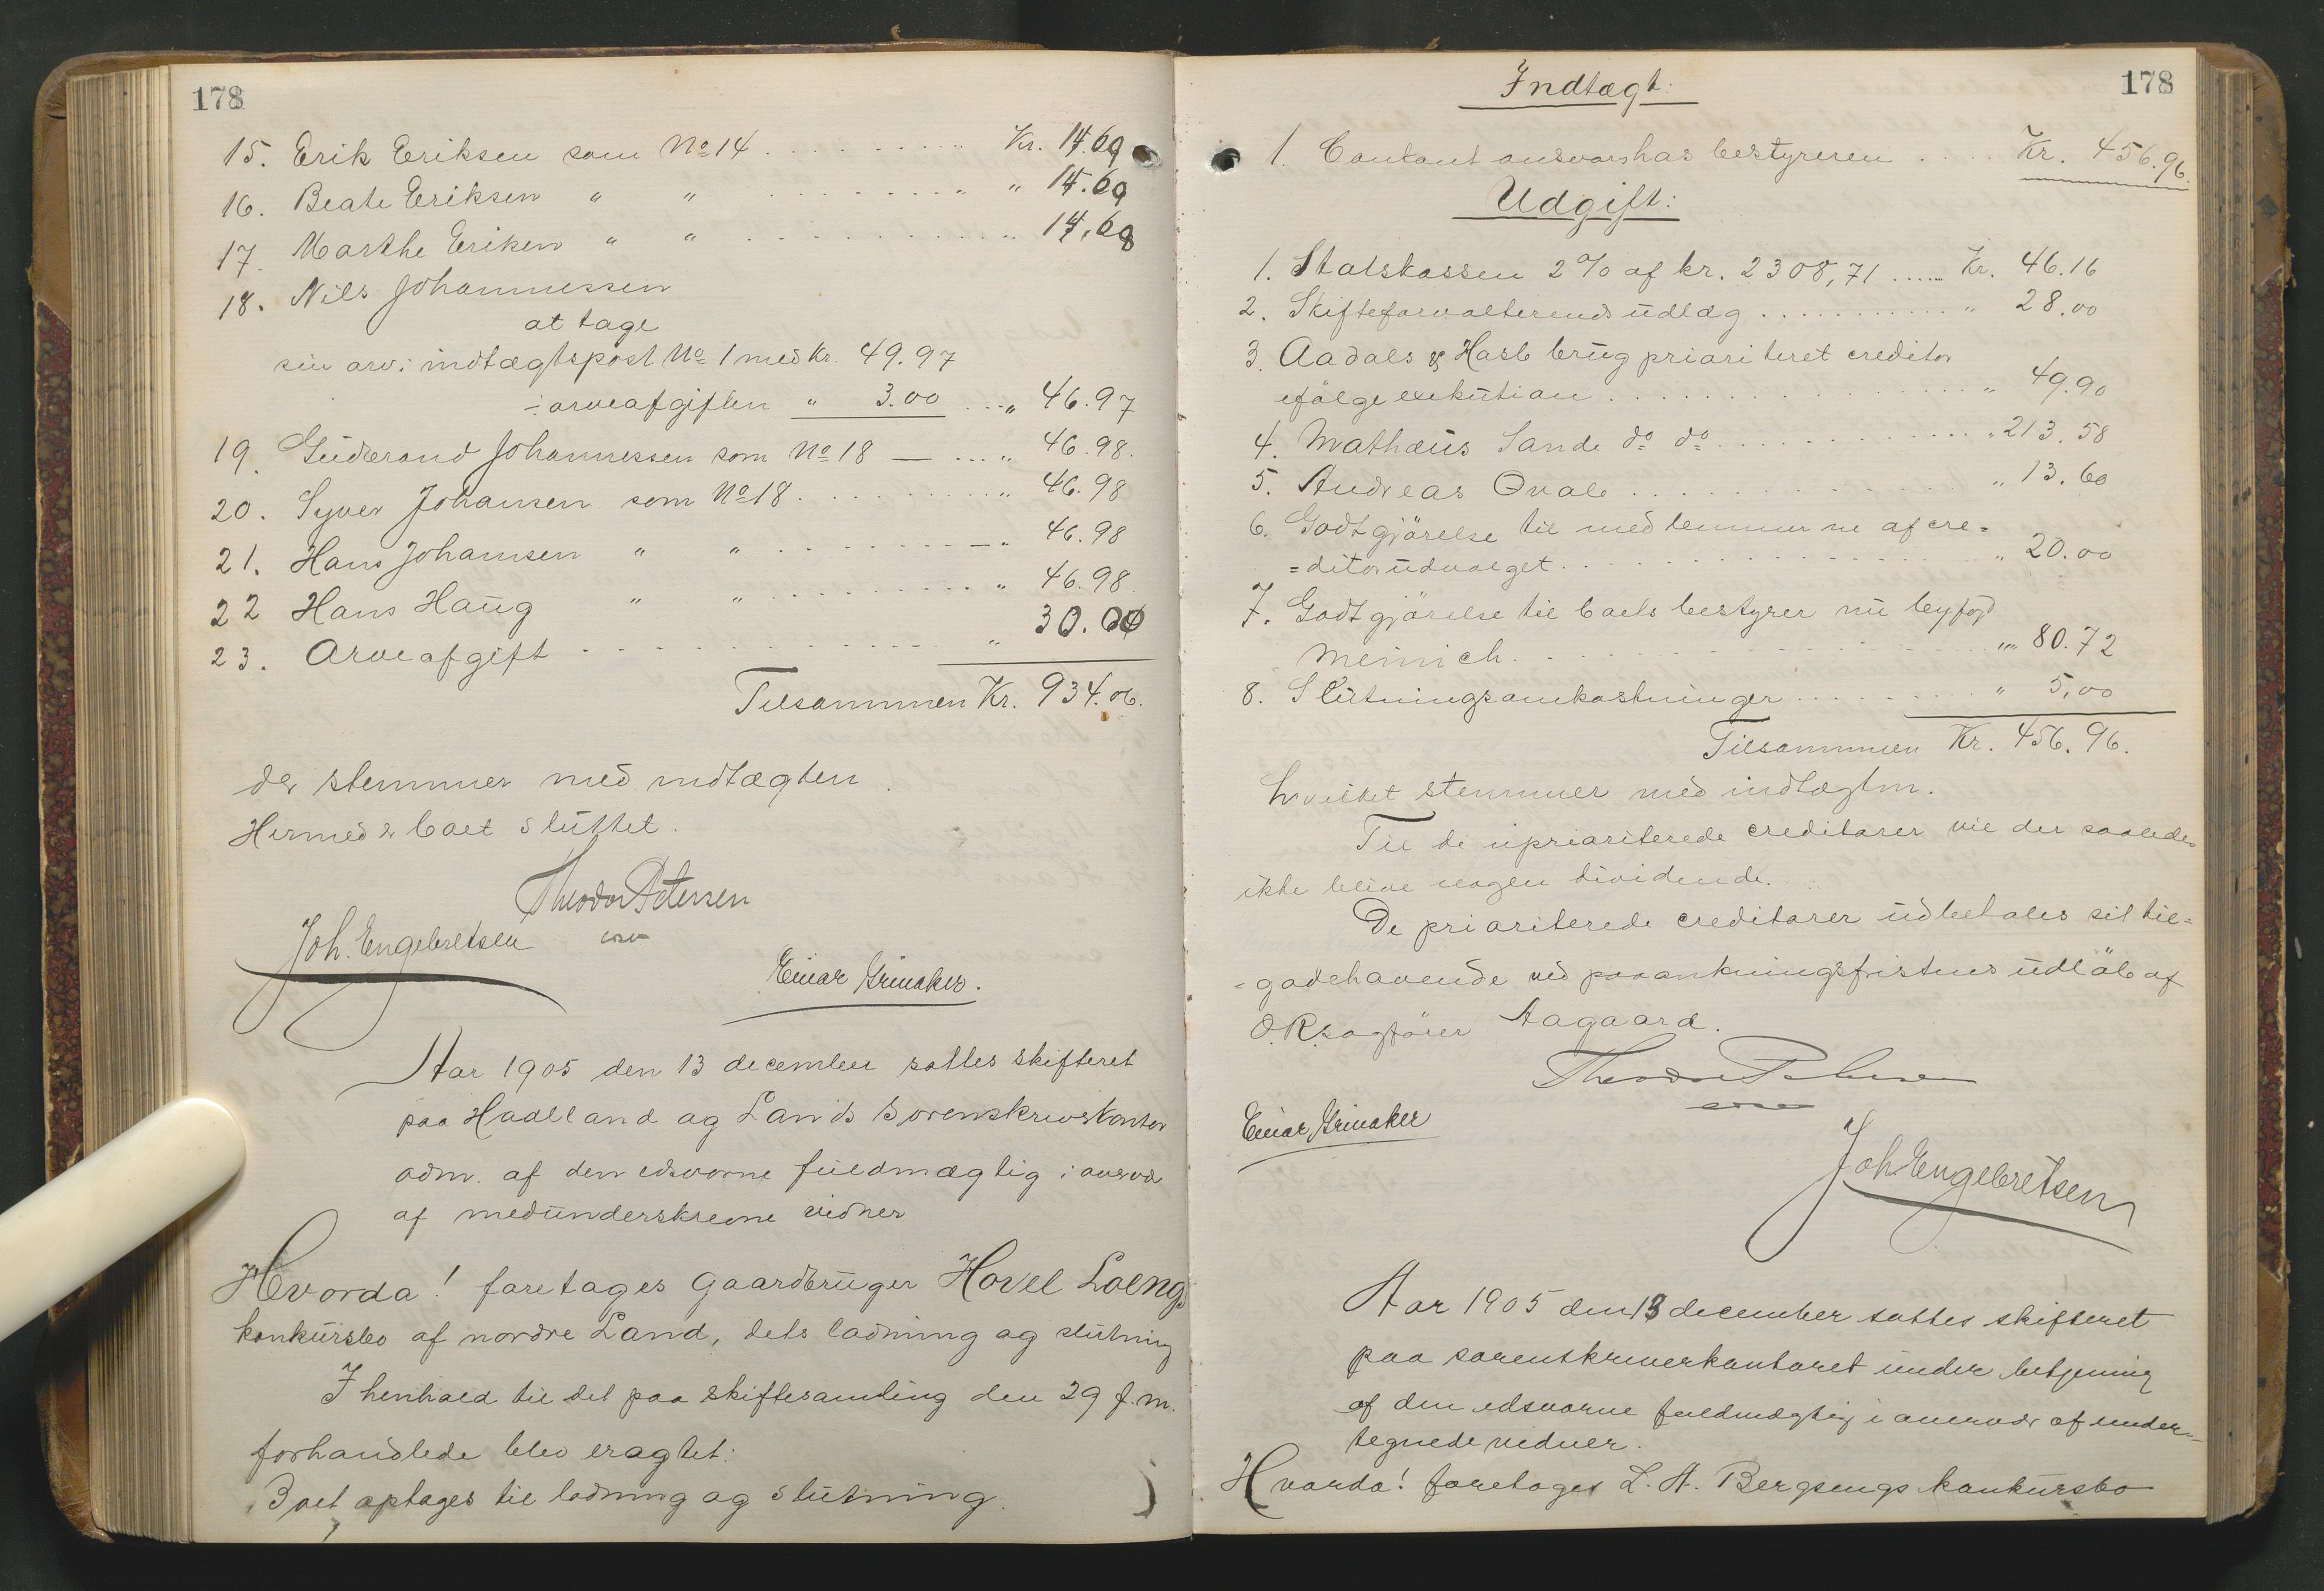 178
15. Erik Eriksen som No 14 . . . . . . . . . Kr. 14.69
16. Beate Eriksen " " . . . . . . . . " " 14.69
17. Marthe Eriken " " . . . . . . . . . . " 14,68
18. Nils Johannessen
at tage
sin arv i indtægtspost No 1 med kr. 49.97
÷ arveafgiften " 3.00 ... " 46.97
19. Gudbrand Johannessen som No 18 — ... " 46.98.
20. Syver Johansen som No 18. . . . . . . . . . " 46.98
21. Hans Johansen " " . . . . . . . — " 46.98
22 Hans Haug " " . . . . . . . . . " 46.98
23. Arveafgift . . . . . . . . . . . . . " 30.00
Tilsammen Kr. 934.06.
der stemmer med indtægten.
Hermed er boet sluttet.
Theodor Petersen
Joh. Engebretsen
Einar Grinaker.
Aar 1905 den 13 december sattes skifteret
paa Hadeland og Lands sorenskriverkontor
adm. af den edsvorne fuldmægtig i overvær
af medunderskrevne vidner
Hvorda! foretages gaardbruger Hovel Loengs
konkursbo af nordre Land, dets ladning og slutning
I henhold til det paa skiftesamling den 29 f.m.
forhandlede blev eragtet:
Boet optages til ladning og slutning.
178
Indtægt:
1. Contant ansvarshas bestyreren . . . . Kr. 456.96.
Udgift:
1. Statskassen 2% af kr. 2308,71 ...... Kr. 46.16
2. Skifteforvalterends udlæg . . . . . . . . . . . " 28.00
3. Aadals & Hasle brug prioriteret creditor
ifølge exekution . . . . . . . . . . . . . . . " 49.90
4. Mathæus Sande do do . . . . . . . . . . . " 213.58
5. Andreas Qvale . . . . . . . . . . . . . . " 13.60
6. Godtgjörelse til medlemmerne af cre=
=ditorudvalget . . . . . . . . . . . . . . . " 20.00
7. Godtgjörelse til boets bestyrer nu byfogd
Meinich. . . . . . . . . . . . . . . . . " 80.72
8. Slutningsomkostninger . . . . . . . . . " 5,00
Tilsammen Kr. 456.96.
hvilket stemmer med indtægten.
Til de uprioriterede creditorer vil der saaledes
ikke blive nogen dividende.
De prioriterede creditorer udbetales sit til=
=godehavende ved paaankningsfristens udløb af
O.R.sagfører Aagaard.
Theodor Petersen
Einar Grinaker
Joh Engebretsen
Aar 1905 den 13 december sattes skifteret
paa sorenskriverkontoret under betjening
af den edsvorne fuldmægtig i overvær af under=
tegnede vidner.
Hvorda! foretages L. A. Bergsengs konkursbo